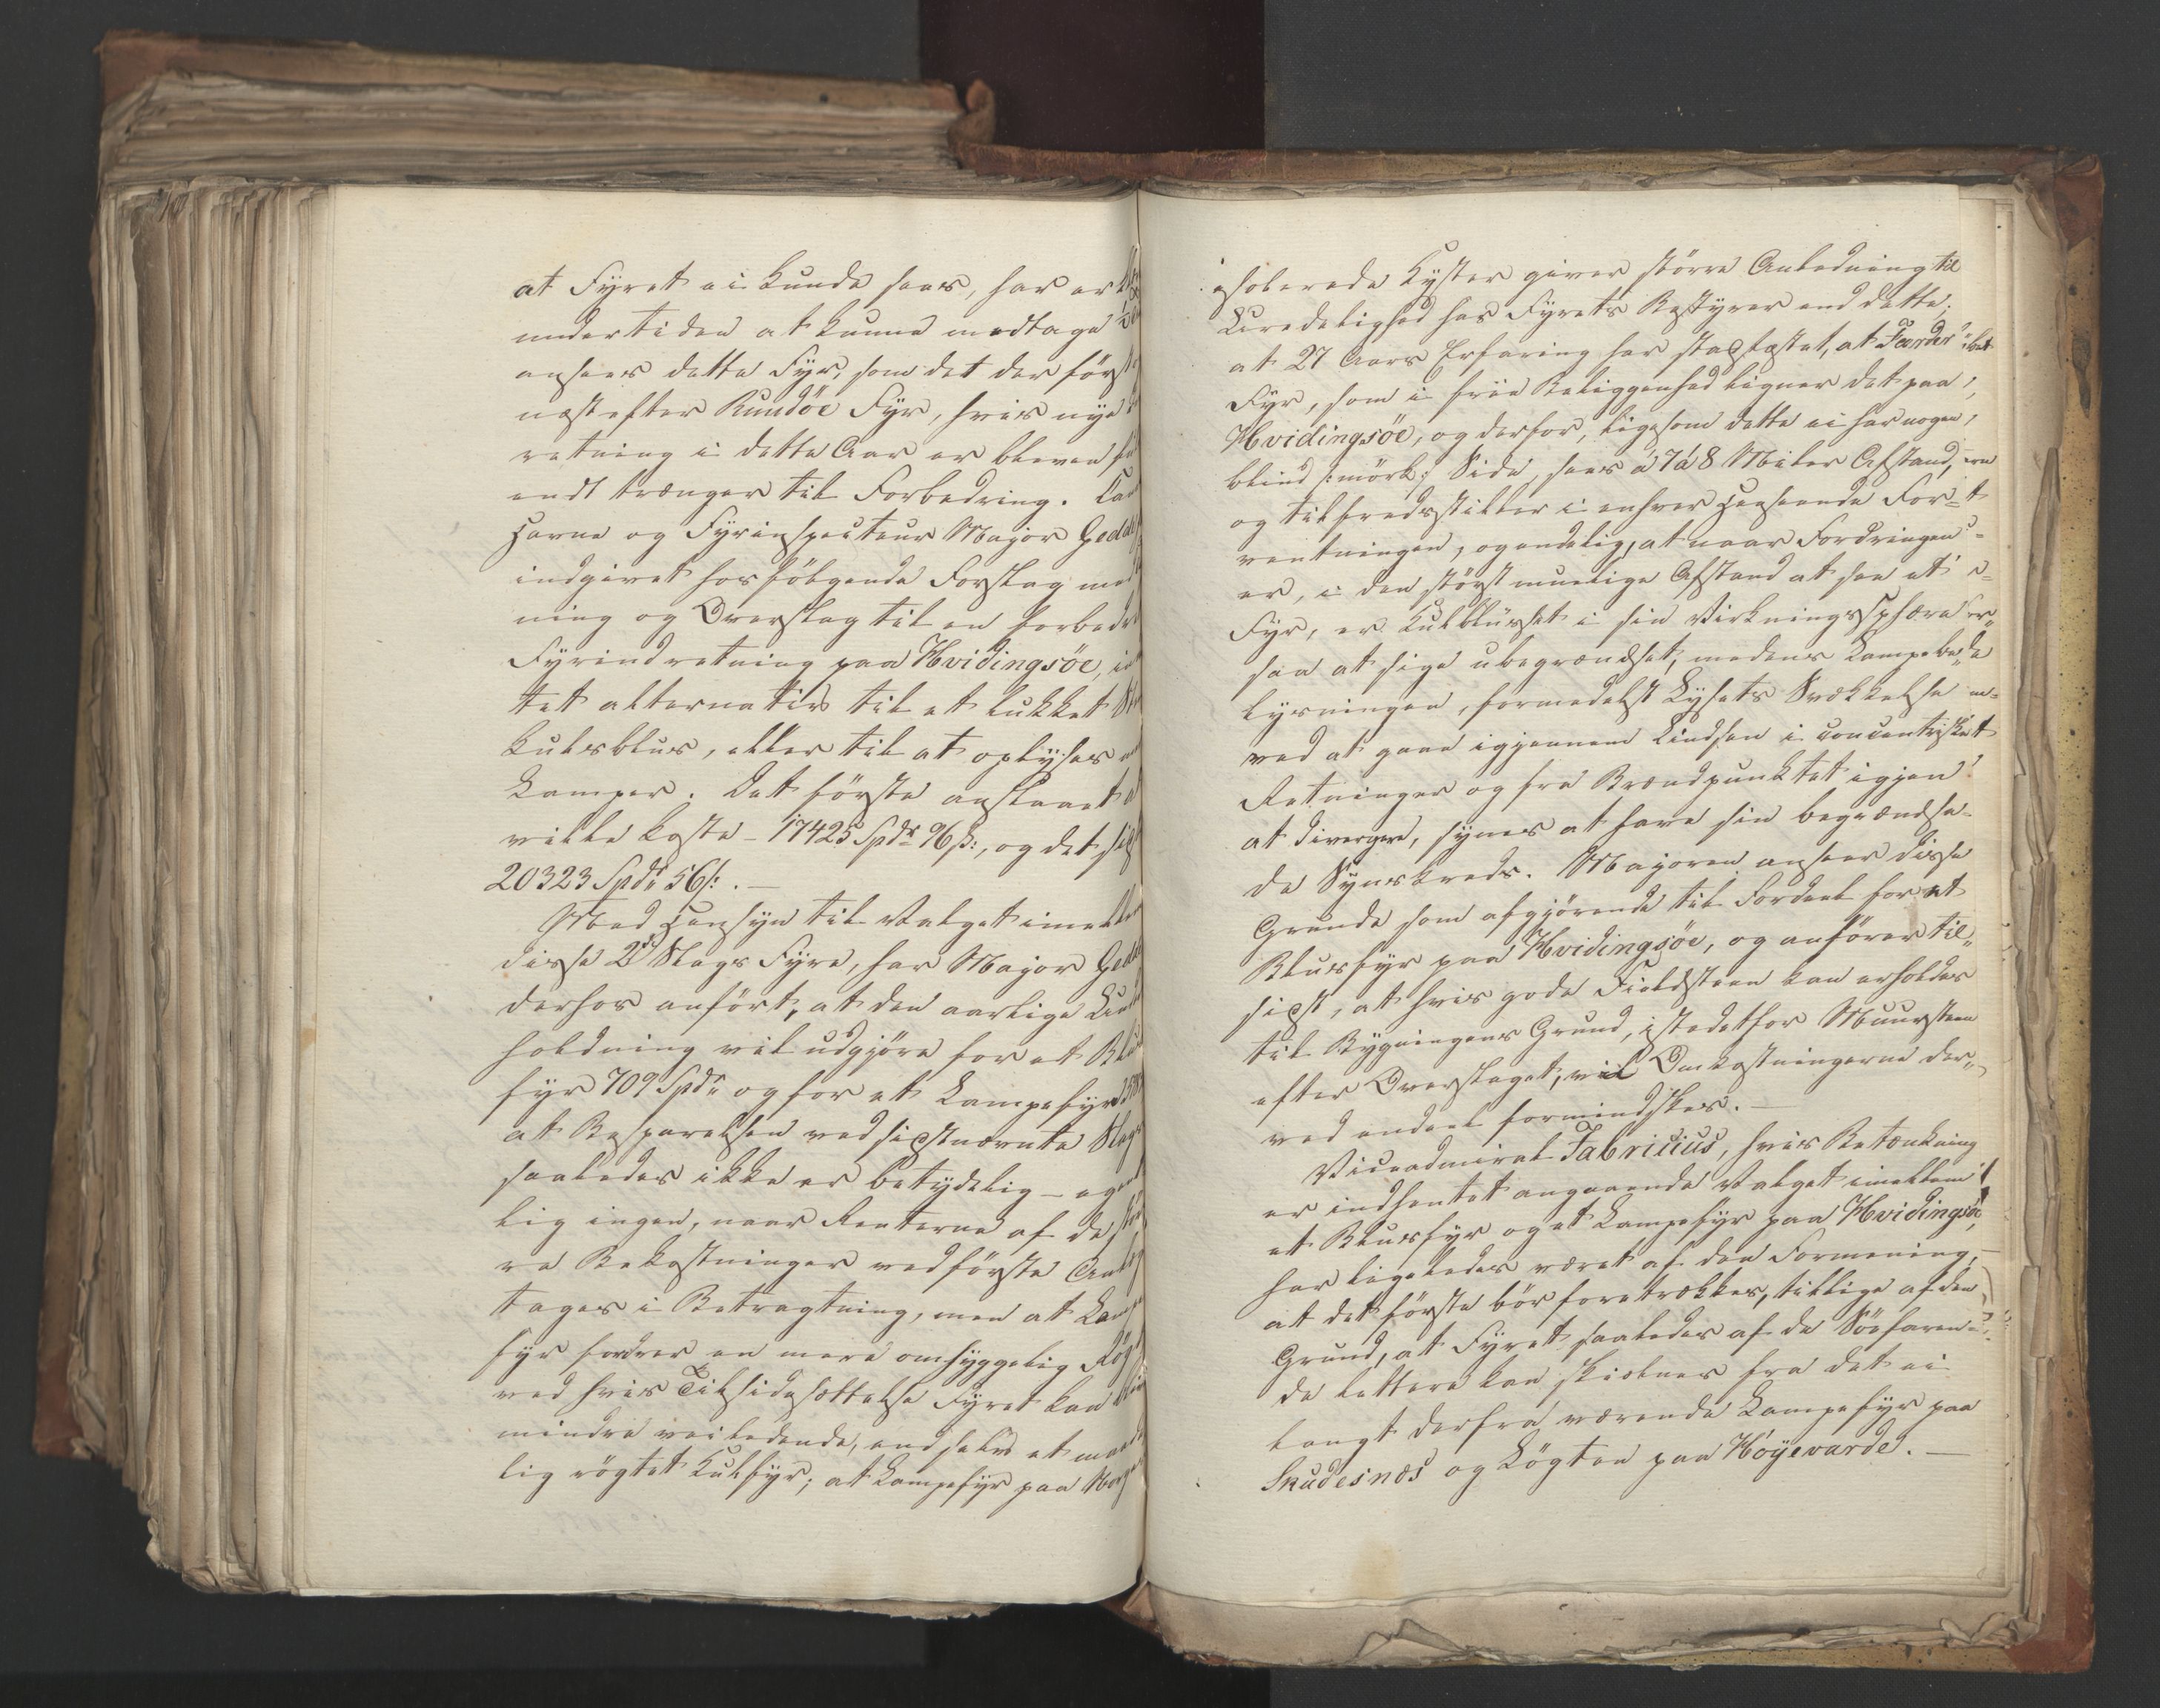 at Fyret ei kunde sees, har er
undertiden at kunne modtage
ansees dette Fyr, som det der först
næst efter Rundöe Fyr, hvis nye
retning i dette Aar er bleven
endt trænger til Forbedring.
Havne og Fyrinspecteur Major Gedde
indgivet hosfölgende Forslag med
ning og Overslag til en forbedr
Fyrindretning paa Hvidingsöe,
tet alternativ til et lukket
kulsblus, eller til at oplyses
Lamper. Det förste anslaaet
ville koste - 17425 Spdr 96 s:, og det sid
20323 Spdr 56 s: . —
Med Hensyn til Valget imellem
disse 2de Slags Fyre, har Major Gedde
derhos anfört, at den aarlige
holdning vil udgjöre for et Blus
fyr 709 Spdr og for et Lampefyr
at Besparelsen ved sidstnævnte Slags
saaledes ikke er betydelig - egent
lig ingen, naar Renterne af de stör
re Bekostninger ved förste Anlæg
tages i Betragtning, men at Lampe
fyr fordrer en mere omhyggelig Rög
ved hvis Tilsidesættelse Fyret kan blive
mindre veiledende, end selv et maade
lig rögtet Kulfyr; at Lampefyr paa Norges
isolerede Kyster giver större Anledning til
Lurvelighed hos Fyrets Bestyrer end dette;
at 27 Aars Erfaring har stadfæstet, at Færder
Fyr, som i frie Beliggenhed ligner det paa
Hvidingsöe, og derfor, ligesom dette ei har nogen
blind /: mörk :/ Side, sees á 7 á 8 Miile Afstand,
og tilfredsstiller i enhver Henseende For-
ventningen, og endelig, at naar Fordringen
er, i den störst muelige Afstand at see et
Fyr, er Kulblusset i sin Virkningssphære
saa at sige ubegrændset, medens Lampebe-
lysningen, formedelst Lysets Svækkelse
ved at gaae igjennem Lindsen i concentrisk
Retninger og fra Brændpunktet igjen
at divergere, synes at have sin begrændse-
de Synskreds. Majoren anseer disse
Grunde som afgjörende til Fordeel for et
Blusfyr paa Hvidingsöe, og anförer til-
sidst, at hvis gode Fieldsteen kan erholdes
til Bygningens Grund, istedetfor Muursteen
efter Overslaget, vil Omkostningerne der-
ved endeel formindskes. —
Viceadmiral Fabricius, hvis Betænkning
er indhentet angaaende Valget imellem
et Blusfyr og et Lampefyr paa Hvidingsöe,
har ligeledes været af den Formening,
at det förste bör foretrækkes, tillige af den
Grund, at Fyret saaledes af de Söefaren-
de lettere kan skielnes fra det ei
langt derfra værende Lampefyr paa
Skudesnæs og Lögten paa Höyevarde. —